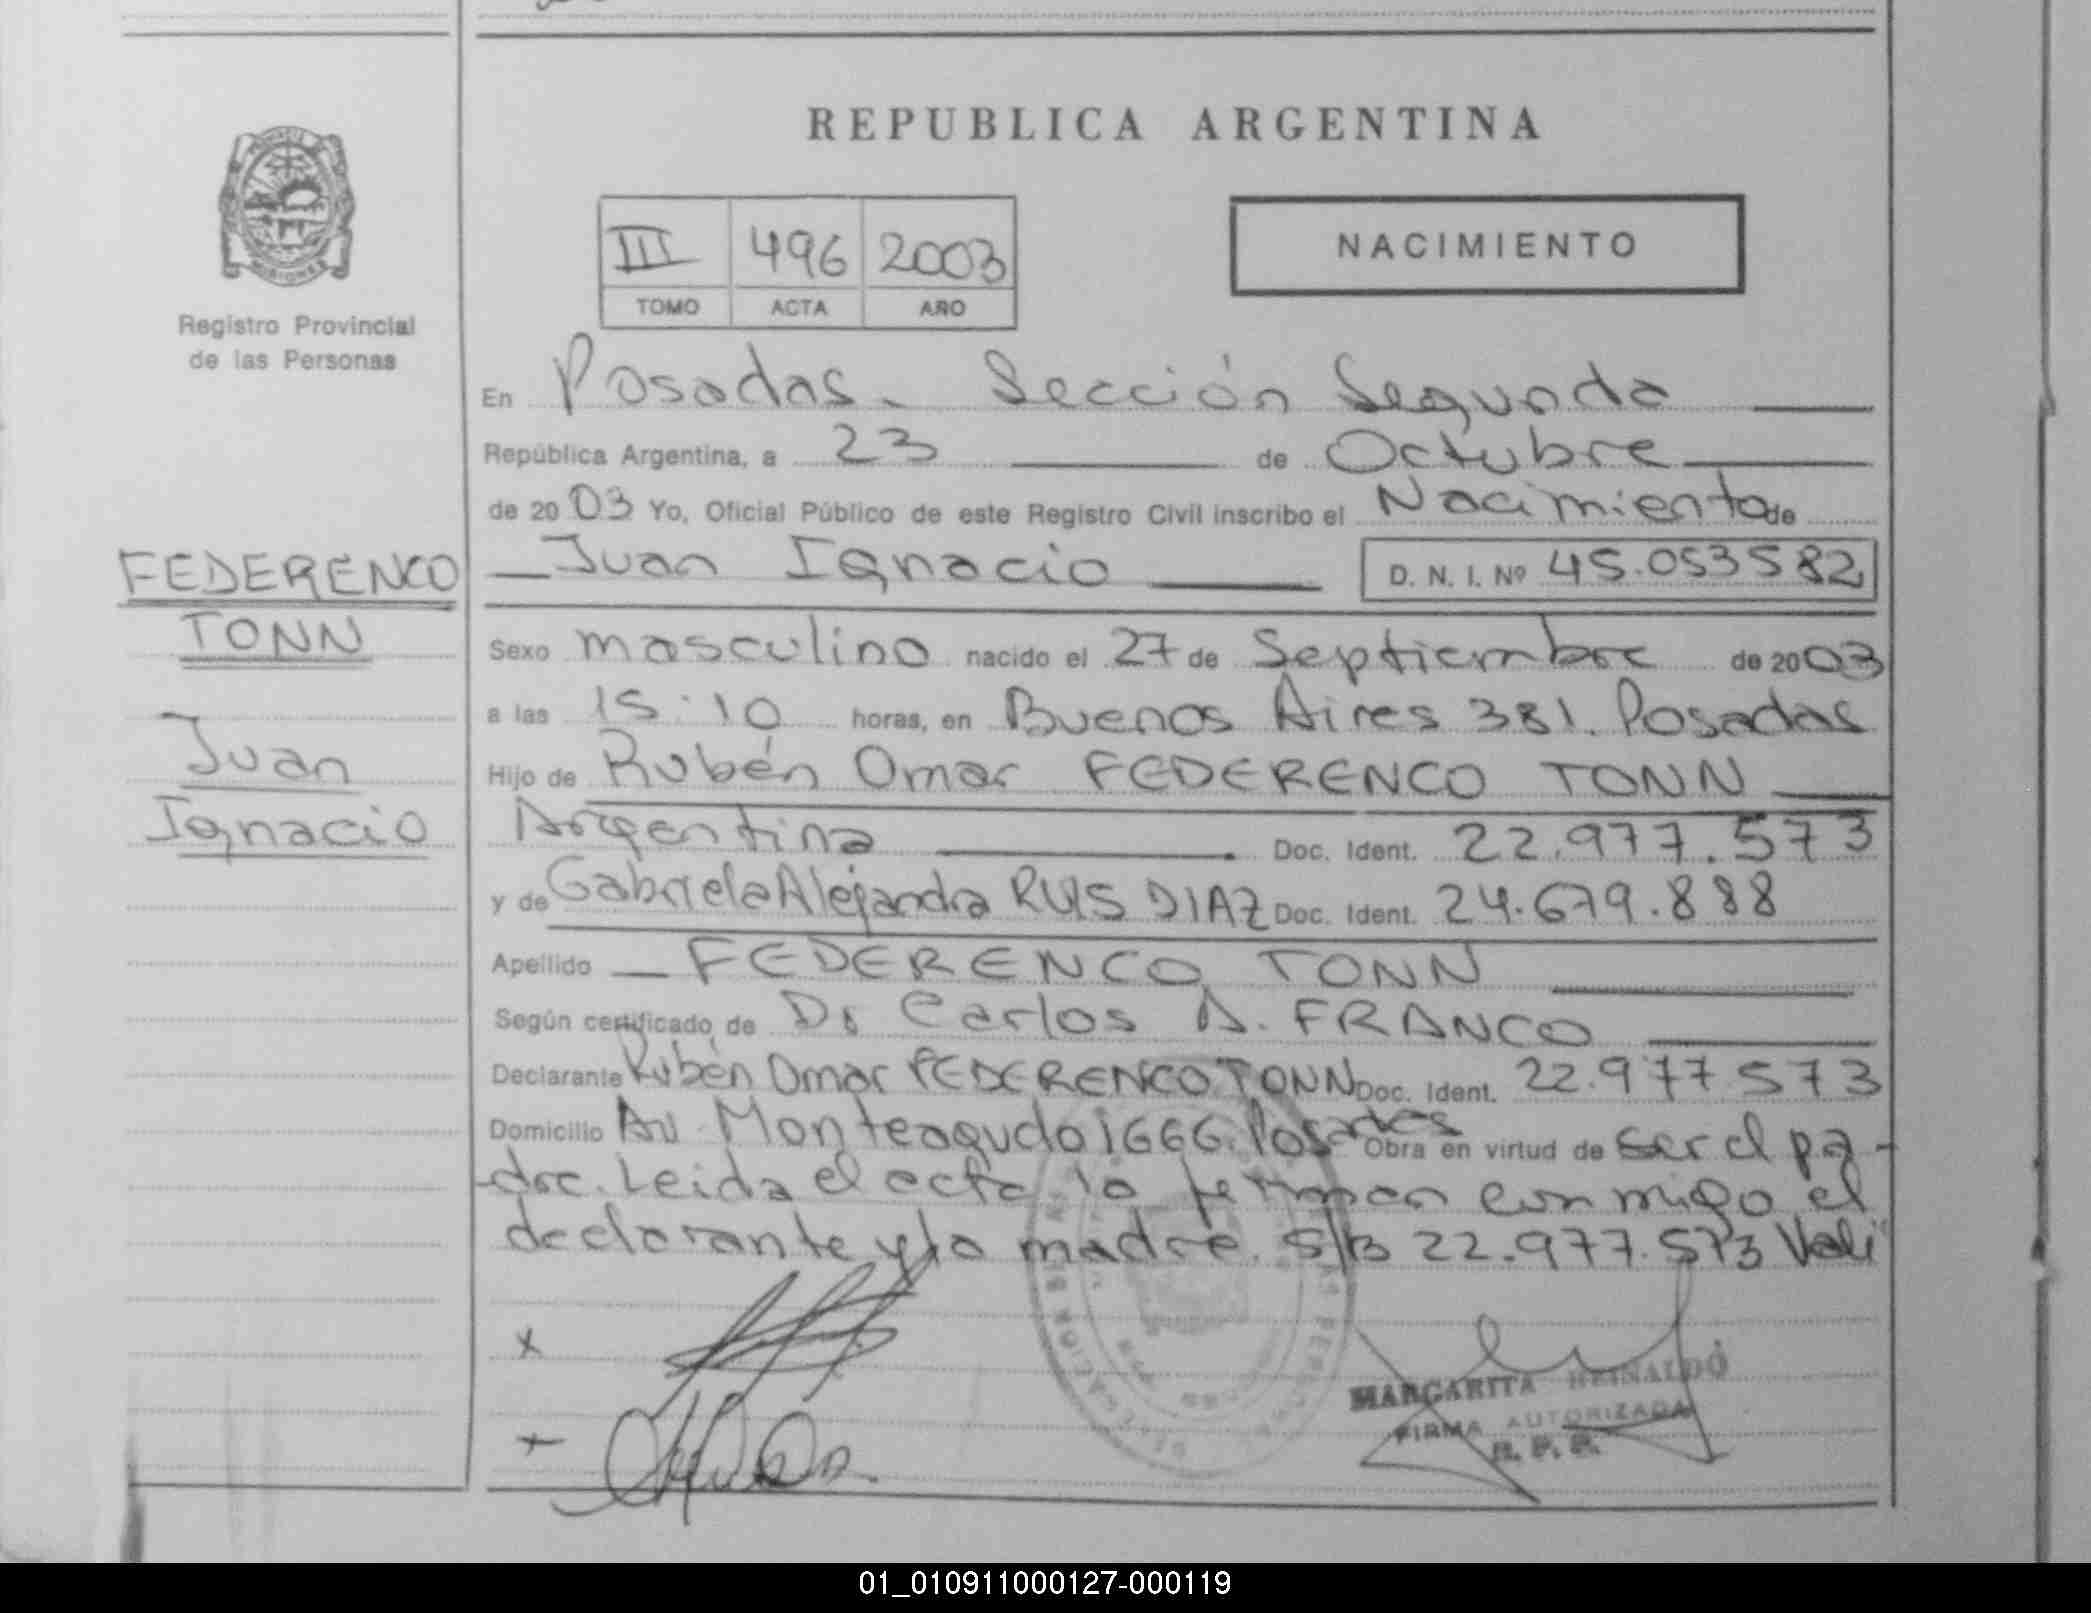 REPUBLICA ARGENTINA
PROVINCIA
MISIONES
Registro Provincial
de las Personas
III 496 2003
TOMO ACTA AÑO
NACIMIENTO
En Posadas. Sección Segunda
República Argentina, a 23 de Octubre
de 2003 Yo, Oficial Público de este Registro Civil inscribo el Nacimiento de
Juan Ignacio D. N. I. Nº 45.053582
FEDERENCO
TONN
Juan
Ignacio
Sexo masculino nacido el 27 de Septiembre de 2003
a las 15:10 horas, en Buenos Aires 381. Posadas
Hijo de Rubén Omar FEDERENCO TONN
Argentina Doc. Ident. 22.977.573
y de Gabriela Alejandra RUIS DIAZ Doc. Ident. 24.679.888
Apellido FEDERENCO TONN
Según certificado de Dr Carlos A. FRANCO
Declarante Rubén Omar FEDERENCO TONN Doc. Ident. 22.977.573
Domicilio Av Monteagudo 1666. Posadas Obra en virtud de ser el pa-
dre. Leida el acta la firman conmigo el
declarante y la madre. S/B 22.977.573 Vali
x
x
MARGARITA REINALDO
FIRMA AUTORIZADA
R. P. P.
01_010911000127-000119